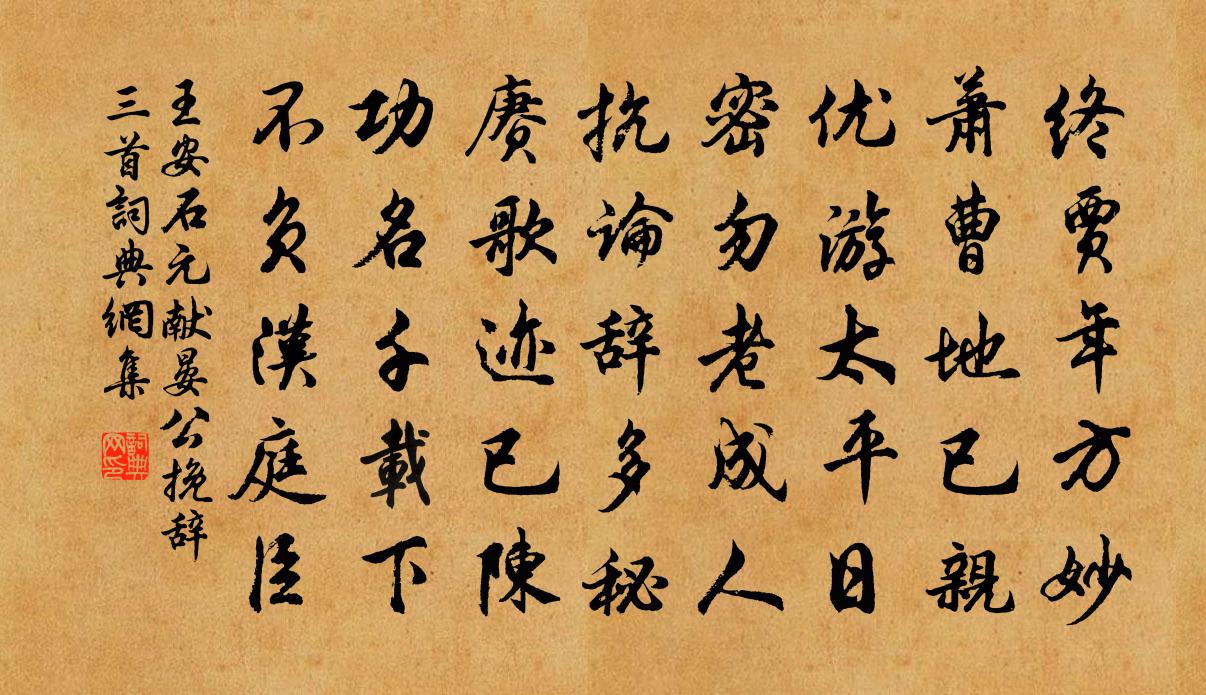 终贾年方妙
萧曹地已親
优游太平日
密勿老成人
抗論辞多秘
赓歌迹已陳
功名千載下
不负漢庭臣
王安石元献晏公挽辞
三首詞典網集
詞典网印